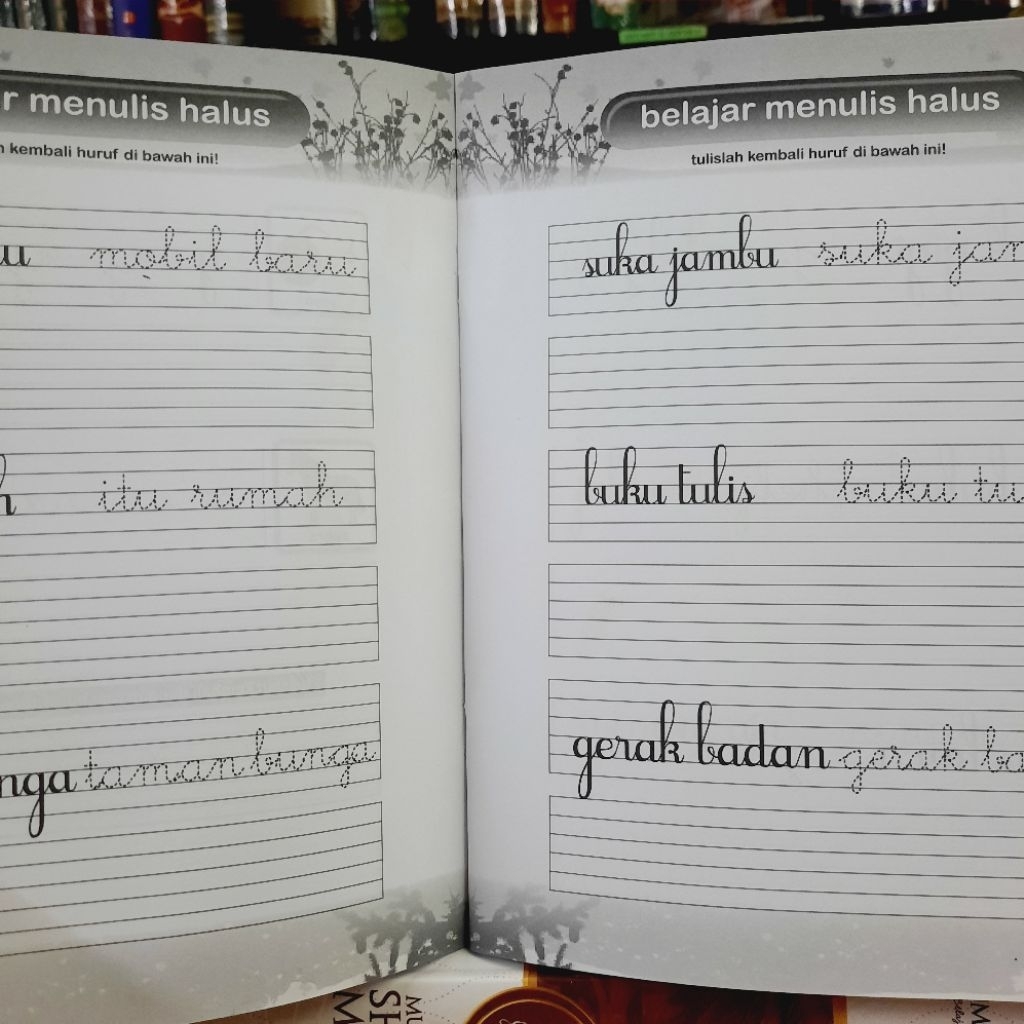 menulis halus
kembali huruf di bawah ini!
mobil baru
itu rumah
taman bunga
belajar menulis halus
tulislah kembali huruf di bawah ini!
suka jambu suka
buku tulis buku
gerak badan gerak